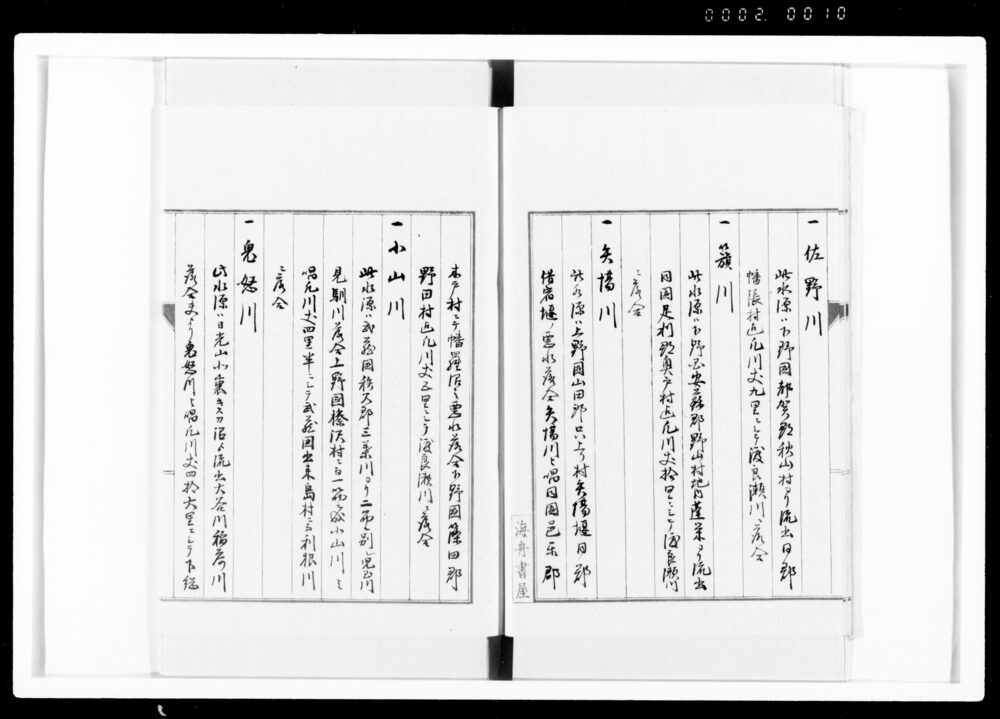 0002. 0010
一 佐野川
此水源ハ下野国都賀郡秋山村ゟ流出同郡
幡張村迄凡川丈九里ニシテ渡良瀬川ニ落合
一 籏川
此水源ハ下野国安蘇郡野山村地内蓬莱ゟ流出
同国足利郡奥戸村迄凡川丈拾里ニシテ渡良瀬川
ニ落合
一 矢場川
此水源ハ上野国山田郡只上村矢場堰同郡
借宿堰ノ悪水落合矢場川ト唱同国邑楽郡
海舟書屋
木戸村ニテ幡羅沼之悪水落合下野国簗田郡
野田村迄凡川丈五里ニシテ渡良瀬川ニ落合
一 小山川
此水源ハ武蔵国秩父郡三菜川ゟ二筋ニ別レ児玉川
見馴川落合上野国榛沢村ニ而一筋ニ成小山川ト
唱凡川丈四里半ニシテ武蔵国出来島村ニ而利根川
ニ落合
一 鬼怒川
此水源ハ日光山小裏キヌ沼ゟ流出大谷川稲荷川
落合夫ゟ鬼怒川ト唱凡川丈四拾六里ニシテ下総